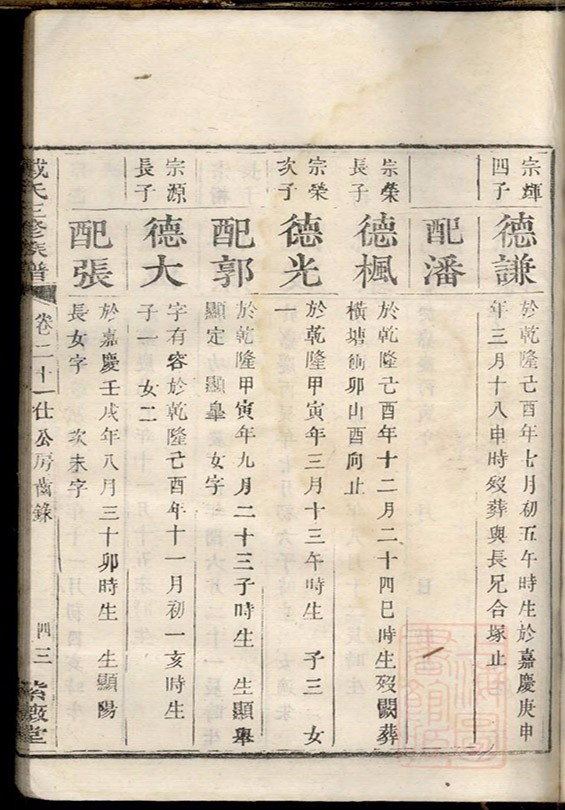 宗輝四子
德謙
於乾隆己酉年七月初五午時生於嘉慶庚申
年三月十八申時歿葬與長兄合塚止
配潘
宗榮長子
德楓
於乾隆己酉年十二月二十四巳時生歿闕葬
橫塘衕卯山酉向止
宗榮次子
德光
於乾隆甲寅年三月十三午時生 子三 女
一
配郭
於乾隆甲寅年九月二十三子時生 生顯舉
顯定 顯皐 女字
宗源長子
德大
字有容於乾隆己酉年十一月初一亥時生
子一 女二
配張
於嘉慶壬戌年八月三十卯時生 生顯陽
長女字 次未字
戴氏三修族譜 卷二十一仕公房齒錄 四三 紫薇堂